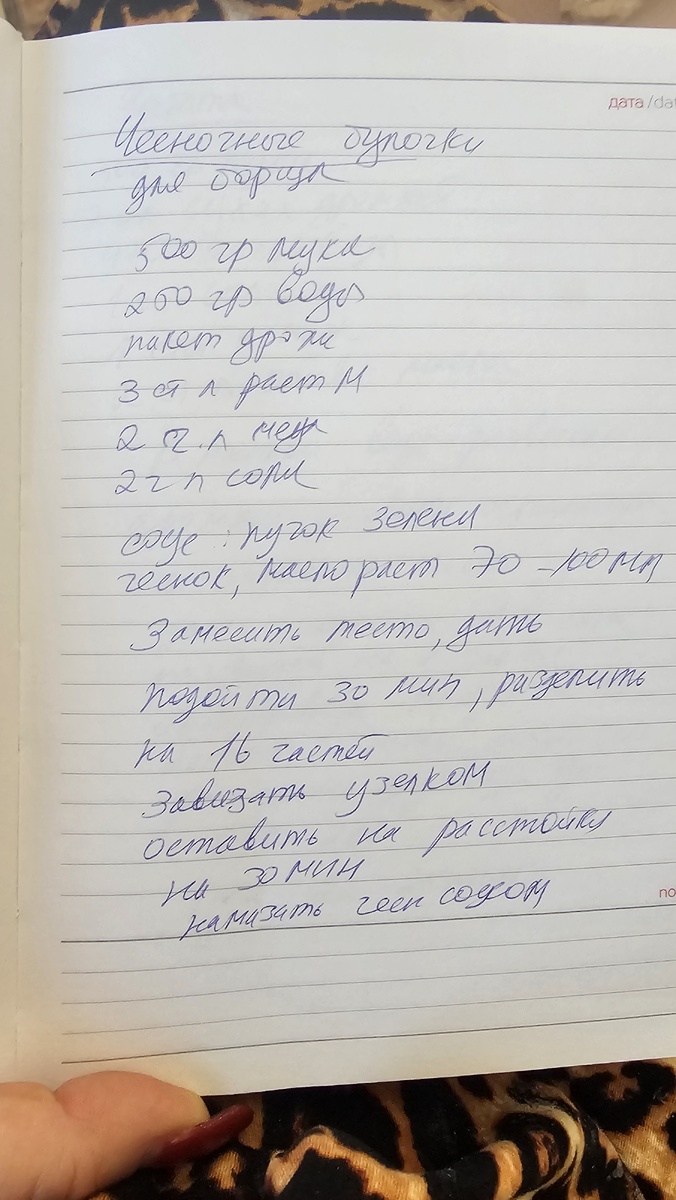 дата/dat
Чесночные булочки
для борща
500 гр мука
250 гр воды
пакет дрожи
3 ст л раст М
2 ст.л меда
2 ч л соли
соус: пучок зелени
чеснок, масло раст 70-100 мл
Замесить тесто, дать
подойти 30 мин, разделить
на 16 частей
Завизать узелком
оставить на расстойки
на 30 мин
намазать чесн соусом
по